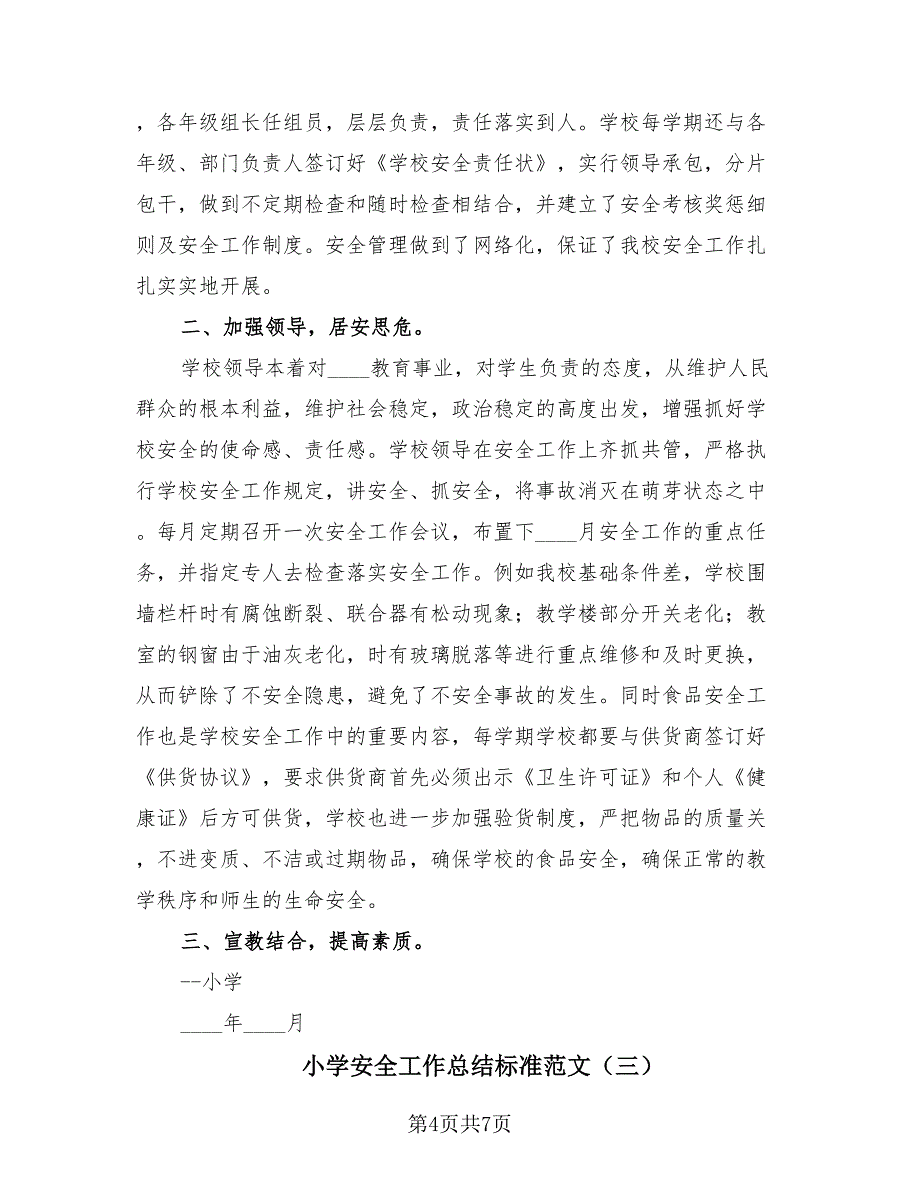 ，各年级组长任组员，层层负责，责任落实到人。学校每学期还与各
年级、部门负责人签订好《学校安全责任状》，实行领导承包，分片
包干，做到不定期检查和随时检查相结合，并建立了安全考核奖惩细
则及安全工作制度。安全管理做到了网络化，保证了我校安全工作扎
扎实实地开展。
二、加强领导，居安思危。
学校领导本着对____教育事业，对学生负责的态度，从维护人民
群众的根本利益，维护社会稳定，政治稳定的高度出发，增强抓好学
校安全的使命感、责任感。学校领导在安全工作上齐抓共管，严格执
行学校安全工作规定，讲安全、抓安全，将事故消灭在萌芽状态之中
。每月定期召开一次安全工作会议，布置下____月安全工作的重点任
务，并指定专人去检查落实安全工作。例如我校基础条件差，学校围
墙栏杆时有腐蚀断裂、联合器有松动现象；教学楼部分开关老化；教
室的钢窗由于油灰老化，时有玻璃脱落等进行重点维修和及时更换，
从而铲除了不安全隐患，避免了不安全事故的发生。同时食品安全工
作也是学校安全工作中的重要内容，每学期学校都要与供货商签订好
《供货协议》，要求供货商首先必须出示《卫生许可证》和个人《健
康证》后方可供货，学校也进一步加强验货制度，严把物品的质量关
，不进变质、不洁或过期物品，确保学校的食品安全，确保正常的教
学秩序和师生的生命安全。
三、宣教结合，提高素质。
--小学
____年____月
小学安全工作总结标准范文（三）
第4页共7页